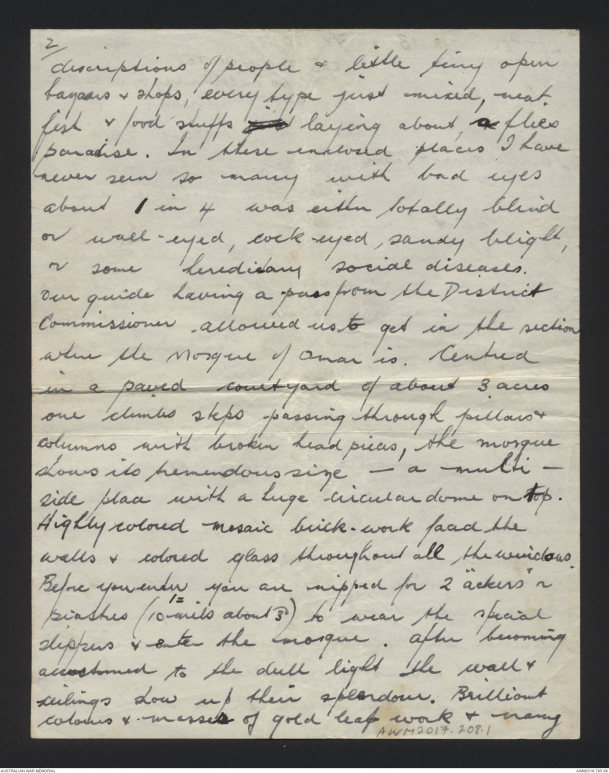 2/
descriptions of people & little tiny open
bazaars & shops, every type just mixed, meat,
fish & food stuffs laying about, a flies
paradise. In these enclosed places I have
never seen so many with bad eyes
about 1 in 4 was either totally blind
or wall-eyed, cock-eyed, sandy blight,
or some hereditary social diseases.
Our guide having a pass from the District
Commissioner allowed us to get in the section
where the Mosque of Omar is. Centred
in a paved courtyard of about 3 acres
one climbs steps passing through pillars &
columns with broken head pieces, the mosque
shows its tremendous size – a multi –
side place with a huge circular dome on top.
Highly colored mosaic brick-work faced the
walls & colored glass throughout all the windows.
Before you enter you are nipped for 2 "ackers" or
piastres (10 mils about 3d) to wear the special
slippers & enter the mosque. After becoming
accustomed to the dull light the wall &
ceilings show up their splendour. Brilliant
colours & masses of gold leaf work & many
AWM2017.208.1
AUSTRALIAN WAR MEMORIAL